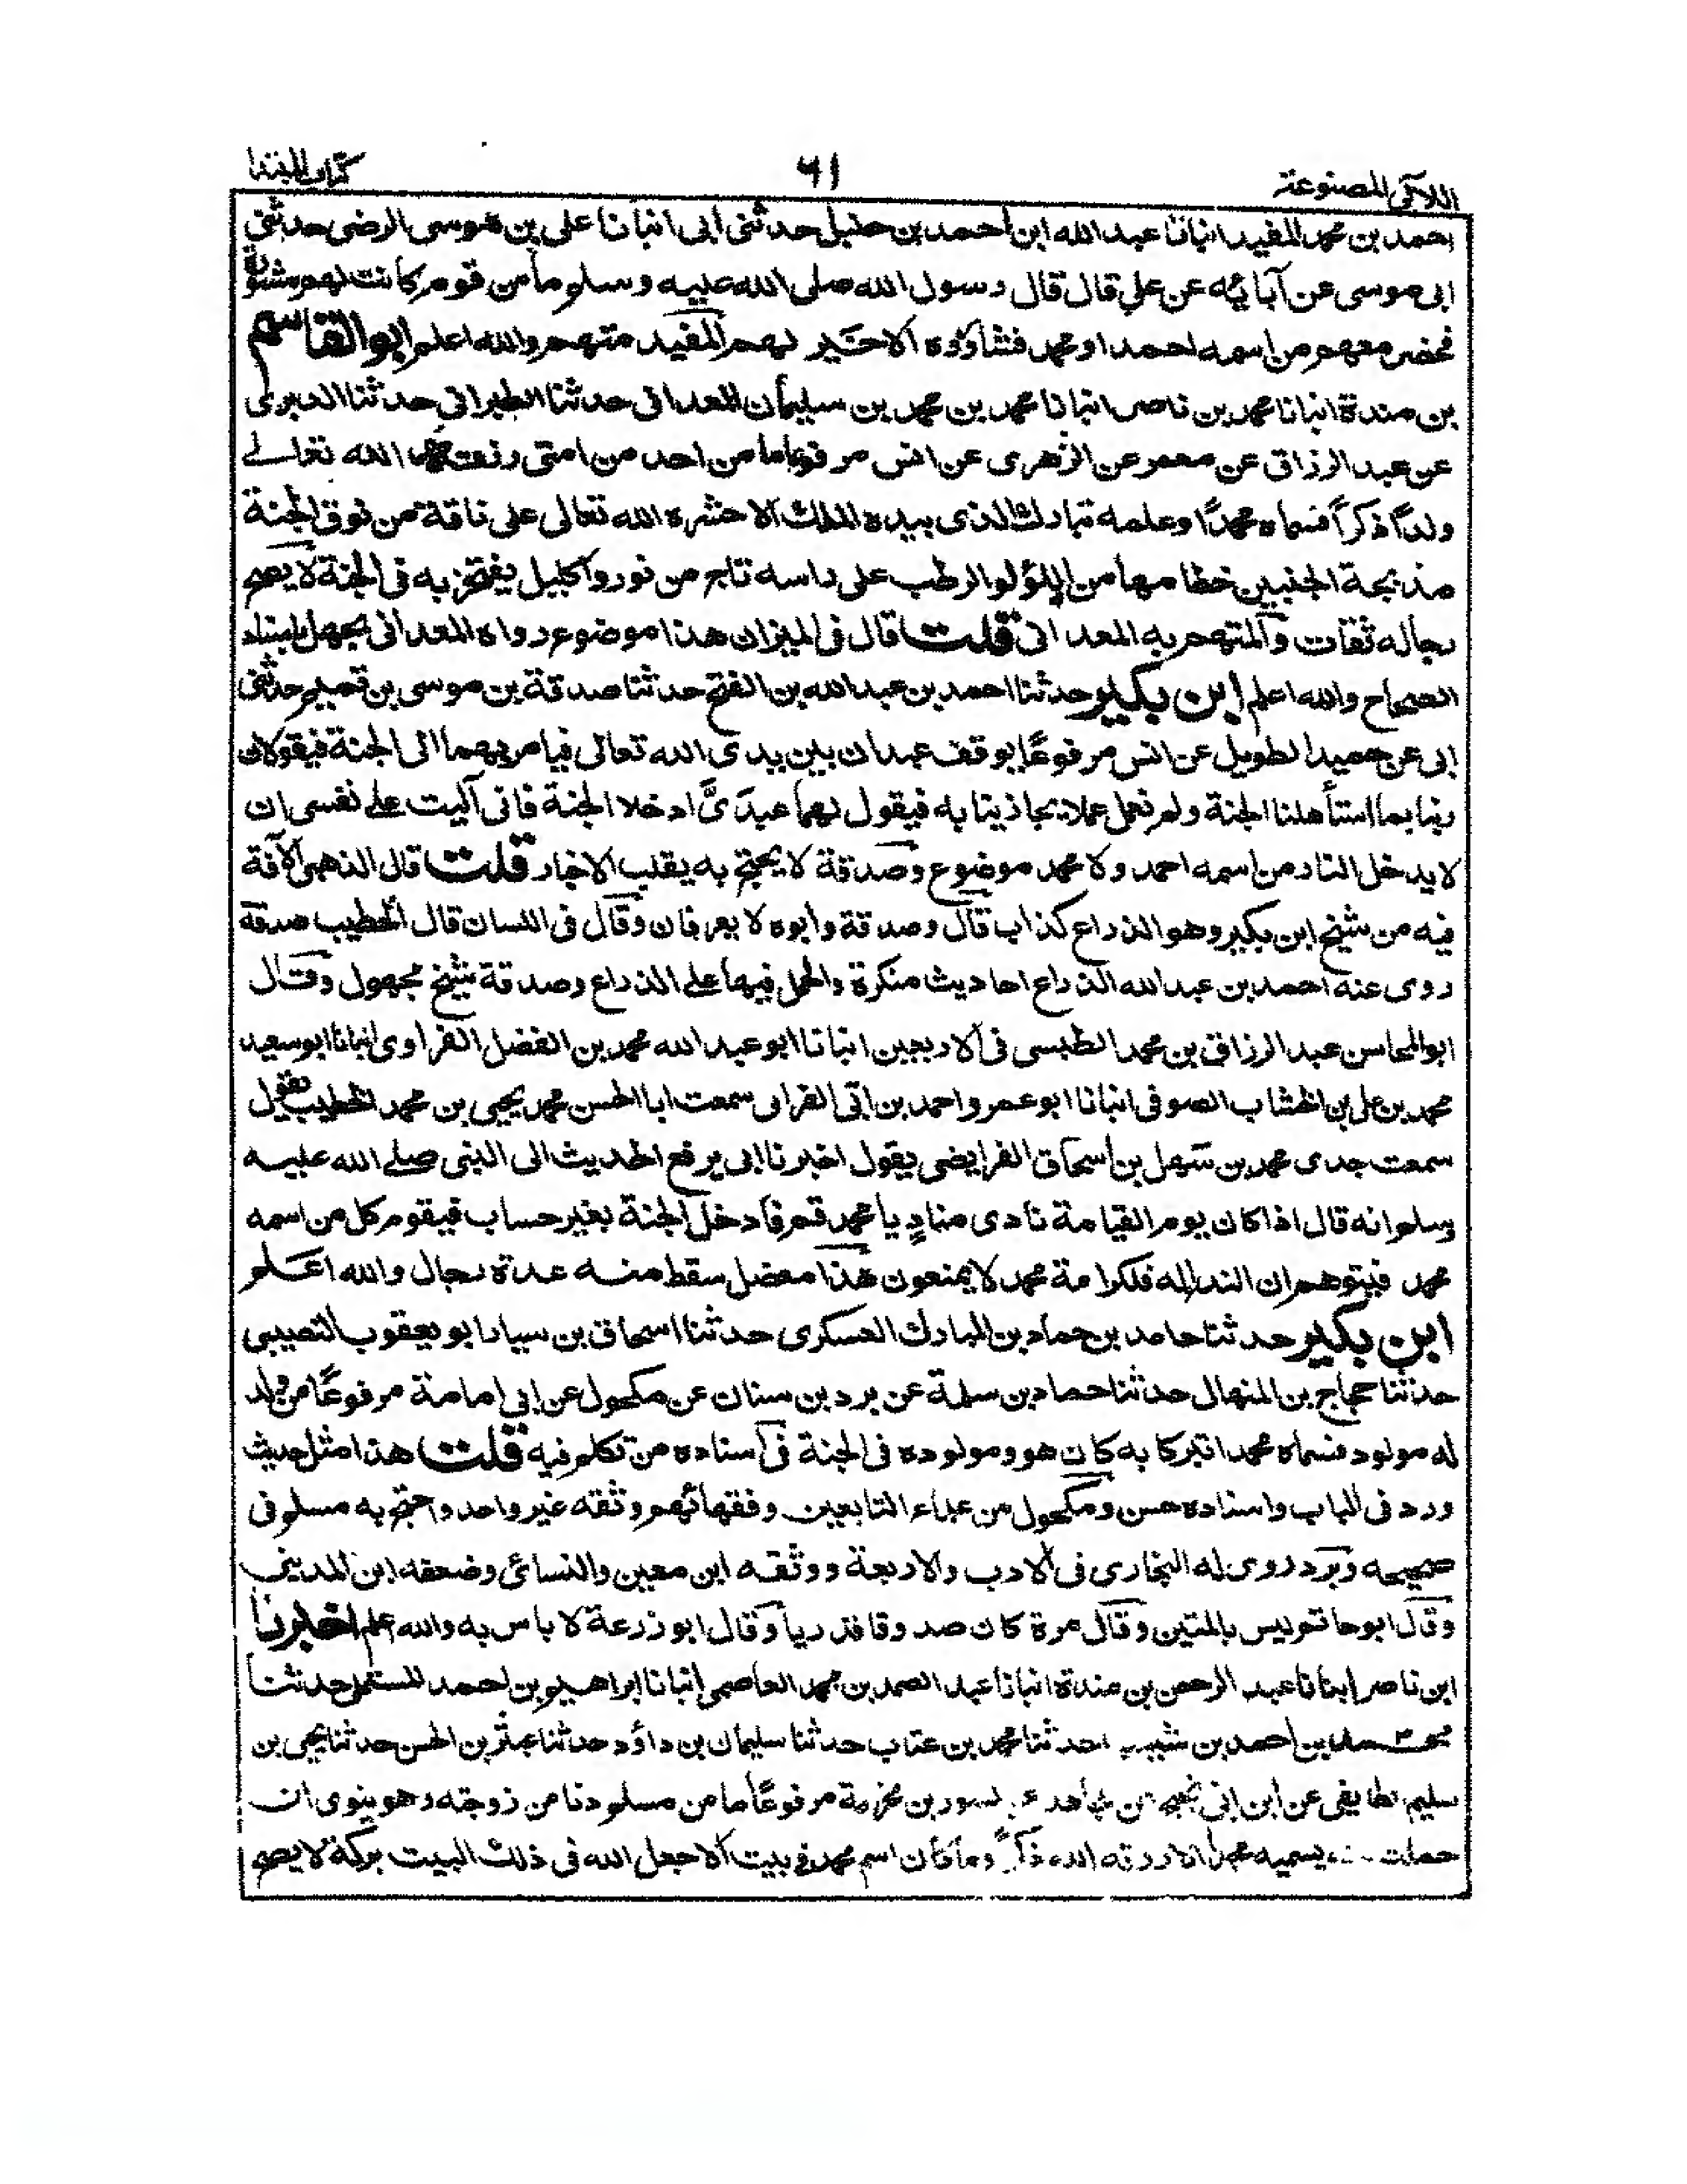 اللآلى المصنوعة
٦١
كتاب المبتدا
احمد بن محمد المفيد انبانا عبد الله ابن احمد بن حنبل حدثنى ابى انبانا على بن موسى الرضى حدثنى
ابى موسى عن آبائه عن على قال قال رسول الله صلى الله عليه وسلم ما من قوم كانت لهم مشورة
فحضر معهم من اسمه احمد او محمد فشاوروه الا خير لهم المفيد متهم والله اعلم ابو القاسم
بن مندة انبانا محمد بن ناصر انبانا محمد بن محمد بن سليمان المعدانى حدثنا الطبرانى حدثنا الدبرى
عن عبد الرزاق عن معمر عن الزهرى عن انس مرفوعا ما من احد من امتى رزقه الله تعالے
ولدًا ذكرًا فسماه محمدًا وعلمه تبارك الذى بيده الملك الا حشره الله تعالى على ناقة من نوق الجنة
مدبجة الجنبين خطامها من اللؤلو الرطب على راسه تاج من نور واكليل يفتخر به فى الجنة لا يصح
رجاله ثقات والمتهم به المعدانى قلت قال فى الميزان هذا موضوع رواه المعدانى بجهل باسناد
الصحاح والله اعلم ابن بكير حدثنا احمد بن عبد الله بن الفتح حدثنا صدقة بن موسى بن تميم حدثنى
ابى عن حميد الطويل عن انس مرفوعًا يوقف عبدان بين يدى الله تعالى فيامر بهما الى الجنة فيقولان
ربنا بما استأهلنا الجنة ولم نعمل عملا يجازينا به فيقول لهما عبدىَّ ادخلا الجنة فانى آليت علے نفسى ان
لا يدخل النار من اسمه احمد ولا محمد موضوع وصدقة لا يحتج به يقلب الاخبار قلت قال الذهبى الآفة
فيه من شيخ ابن بكير وهو الذراع كذاب قال وصدقة وأبوه لا يعرفان وقال فى اللسان قال الخطيب صدقة
روى عنه احمد بن عبد الله الذراع احاديث منكرة والحمل فيها علے الذراع وصدقة شيخ مجهول وقال
ابو المحاسن عبد الرزاق بن محمد الطبسى فى الاربعين انبانا ابو عبد الله محمد بن الفضل الفراوى انبانا ابو سعيد
محمد بن على بن الخشاب الصوفى انبانا ابو عمرو احمد بن ابى الفراتى سمعت ابا الحسن محمد يحيى بن محمد الخطيب يقول
سمعت جدى محمد بن سهل بن اسحاق الفرايضى يقول اخبرنا ابى يرفع الحديث الى النبى صلے الله عليه
وسلم انه قال اذا كان يوم القيامة نادى منادٍ يا محمد قم فادخل الجنة بغير حساب فيقوم كل من اسمه
محمد فيتوهم ان النداء له فلكرامة محمد لا يمنعون هذا معضل سقط منه عدة رجال والله اعلم
ابن بكير حدثنا حامد بن حماد بن المبارك العسكرى حدثنا اسحاق بن سيار ابو يعقوب النصيبى
حدثنا حجاج بن المنهال حدثنا حماد بن سلمة عن برد بن سنان عن مكحول عن ابى امامة مرفوعًا من ولد
له مولود فسماه محمدا تبركا به كان هو ومولوده فى الجنة فى اسناده من تكلم فيه قلت هذا امثل حديث
ورد فى الباب واسناده حسن ومكحول من علماء التابعين وفقهائهم وثقه غير واحد واحتج به مسلم فى
صحيحه وبرد روى له البخارى فى الادب والاربعة ووثقه ابن معين والنسائى وضعفه ابن المدينى
وقال ابو حاتم ليس بالمتين وقال مرة كان صدوقا قدريا وقال ابو زرعة لا باس به والله اعلم اخبرنا
ابن ناصر انبانا عبد الرحمن بن مندة انبانا عبد الصمد بن محمد العاصمى انبانا ابراهيم بن احمد المستملى حدثنا
محمد بن احمد بن شبيب حدثنا محمد بن عتاب حدثنا سليمان بن داؤد حدثنا عبثر بن الحسن حدثنا يحيى بن
سليم الطايفى عن ابن ابى نجيح عن مجاهد عن المسور بن مخرمة مرفوعًا ما من مسلم دنا من زوجته وهو ينوى ان
حملت يسميه محمدا الا رزقه الله ذكرًا وما كان اسم محمد فى بيت الا جعل الله فى ذلك البيت بركة لا يصح